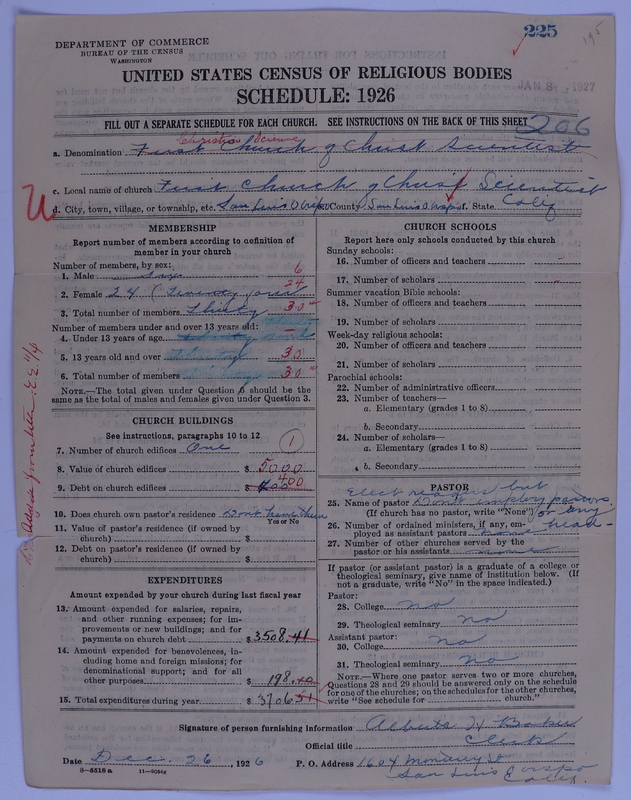 225
195
DEPARTMENT OF COMMERCE
BUREAU OF THE CENSUS
WASHINGTON
UNITED STATES CENSUS OF RELIGIOUS BODIES
JAN 8 1927
SCHEDULE: 1926
FILL OUT A SEPARATE SCHEDULE FOR EACH CHURCH. SEE INSTRUCTIONS ON THE BACK OF THIS SHEET
206
Christian Science
a. Denomination First Church of Christ Scientist
c. Local name of church First Church of Christ Scientist
d. City, town, village, or township, etc. San Luis Obispo County San Luis Obispo State Calif
MEMBERSHIP
Report number of members according to definition of
member in your church
Number of members, by sex:
1. Male Six 6
2. Female 24 (Twenty four) 24
3. Total number of members Thirty 30
Number of members under and over 13 years old:
4. Under 13 years of age —
5. 13 years old and over 30
6. Total number of members 30
NOTE.—The total given under Question 6 should be the
same as the total of males and females given under Question 3.
CHURCH BUILDINGS
See instructions, paragraphs 10 to 12
7. Number of church edifices One 1
8. Value of church edifices $ 5000
9. Debt on church edifices $ 400
10. Does church own pastor's residence Dont have them
Yes or No
11. Value of pastor's residence (if owned by
church) $
12. Debt on pastor's residence (if owned by
church) $
EXPENDITURES
Amount expended by your church during last fiscal year
13. Amount expended for salaries, repairs,
and other running expenses; for im-
provements or new buildings; and for
payments on church debt $ 3508.41
14. Amount expended for benevolences, in-
cluding home and foreign missions; for
denominational support; and for all
other purposes $ 198.10
15. Total expenditures during year $ 3706.51
CHURCH SCHOOLS
Report here only schools conducted by this church
Sunday schools:
16. Number of officers and teachers
17. Number of scholars
Summer vacation Bible schools:
18. Number of officers and teachers
19. Number of scholars
Week-day religious schools:
20. Number of officers and teachers
21. Number of scholars
Parochial schools:
22. Number of administrative officers
23. Number of teachers—
a. Elementary (grades 1 to 8)
b. Secondary
24. Number of scholars—
a. Elementary (grades 1 to 8)
b. Secondary
PASTOR
Elect readers but
25. Name of pastor Dont employ pastors
(If church has no pastor, write "None") or any
26. Number of ordained ministers, if any, em-
ployed as assistant pastors none
27. Number of other churches served by the
pastor or his assistants none
If pastor (or assistant pastor) is a graduate of a college or
theological seminary, give name of institution below. (If
not a graduate, write "No" in the space indicated.)
Pastor:
28. College no
29. Theological seminary no
Assistant pastor:
30. College no
31. Theological seminary No
NOTE.—Where one pastor serves two or more churches,
Questions 28 and 29 should be answered only on the schedule
for one of the churches; on the schedules for the other churches,
write "See schedule for church."
Signature of person furnishing information Alberta H Baker
Official title Clerk
Date Dec. 26, 1926 P. O. Address 1604 Monterey St
San Luis Obispo
Calif.
8—5518 a 11—9054a